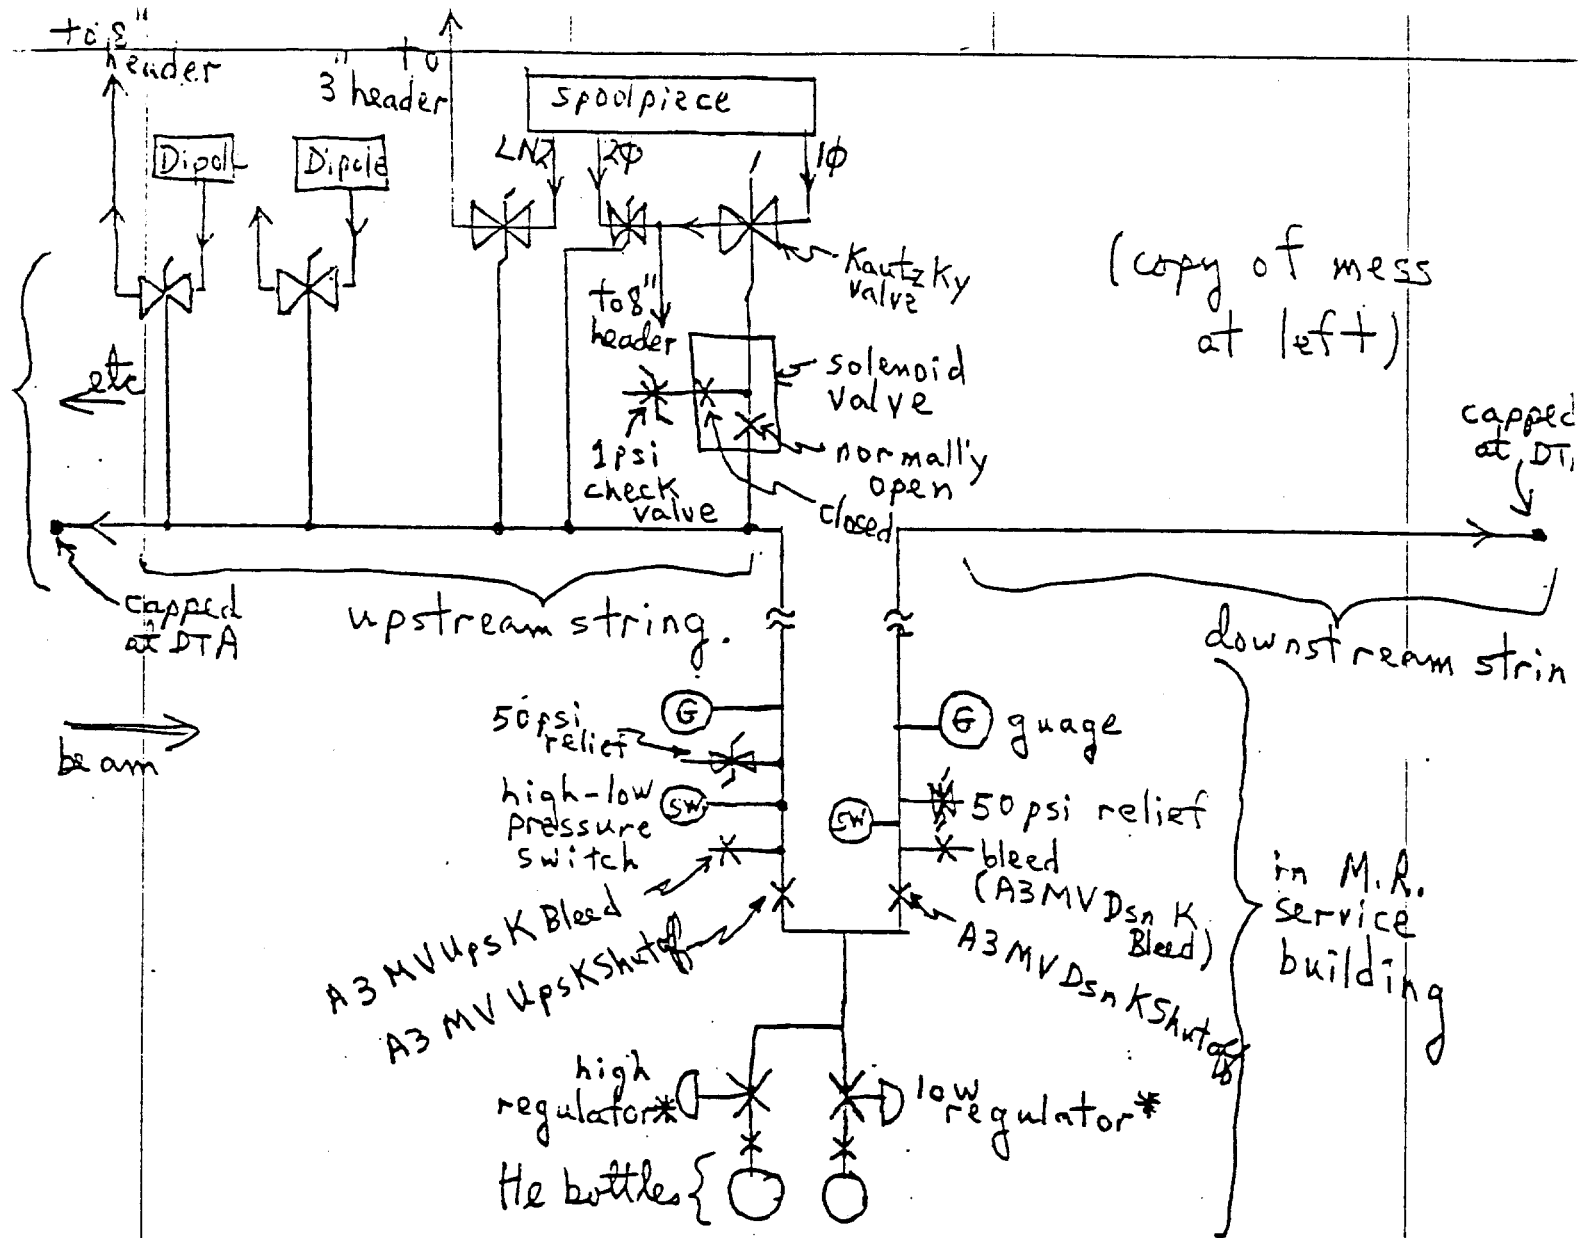 to 8"
header
to
3" header
spoolpiece
LN2
2ϕ
1ϕ
Dipole
Dipole
Kautzky
valve
(copy of mess
at left)
to 8"
header
solenoid
valve
etc
1 psi
check
valve
normally
open
closed
capped
at DT
capped
at DTA
upstream string.
downstream strin
beam
G
50 psi
relief
G
guage
high-low
pressure
switch
SW
SW
50 psi relief
bleed
(A3MVDsnK
Bleed)
A3MVUpsKBleed
A3MVUpsKShutoff
A3MVDsnKShutoff
in M.R.
service
building
high
regulator*
low
regulator*
He bottles